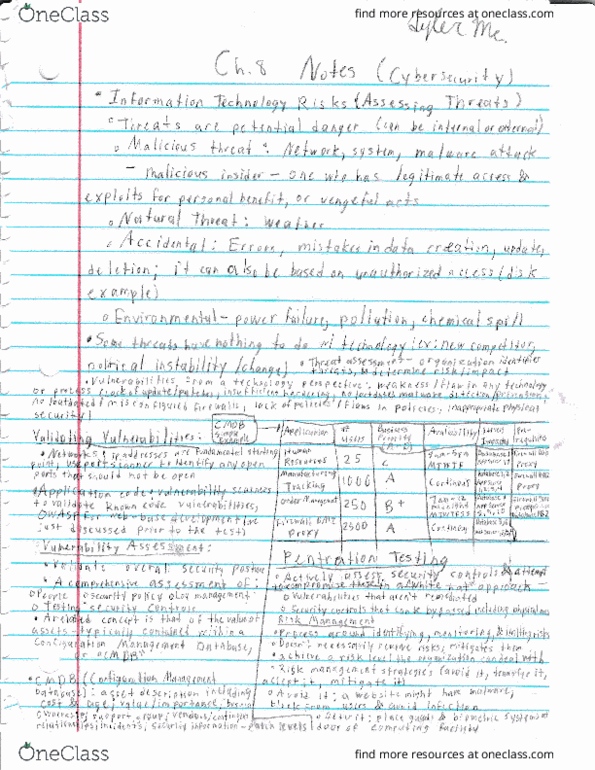 OneClass
find more resources at oneclass.com
Tyler Mc.
Ch.8 Notes (Cybersecurity)
• Information Technology Risks (Assessing Threats)
• Threats are potential danger (can be internal or external)
o Malicious threat: Network, system, malware attack
- malicious insider - one who has legitimate access &
exploits for personal benefit, or vengeful acts
o Natural Threat: weather
o Accidental: Errors, mistakes in data creation, update,
deletion; it can also be based on unauthorized access (disk
example)
o Environmental - power failure, pollution, chemical spill
• Some threats have nothing to do w/ technology (ex: new competitor,
political instability/change)
• Threat assessment - organization identifies
threats, & determine risk/impact
• Vulnerabilities from a technology perspective: weakness/flaw in any technology
or process (lack of update/patches, insufficient hardening, no/outdated malware detection/prevention,
no/outdated/misconfigured firewalls, lack of policies/flaws in policies, inappropriate physical
security)
Validating Vulnerabilities:
• Networks: ip addresses are fundamental starting
point, use port scanner to identify any open
ports that should not be open
• Application code: vulnerability scanners
to validate known code vulnerabilities,
OWASP for web-base development (we
just discussed prior to the test)
CMDB
Simple
Example
Application # Users Business Priority Availability
Human Resources 25 C 7am-5pm MTWTF
Manufacturing Tracking 1000 A Continous
Order Management 250 B+
Firewall DMZ proxy 2500 A Continous
Vulnerability Assessment:
• Validate overall security posture
• A comprehensive assessment of:
o People o security policy o Log management
o Testing security controls
• A related concept is that of the value of
assets - typically contained within a
Configuration Management Database,
or "CMDB"
• CMDB (Configuration Management
Database): asset description including
cost & age, value/importance,
support group, vendors/
relationships, incidents, security information - patch levels
Pentration Testing
• Actively assess security controls & attempt
to compromise them in a "white hat" approach
o Vulnerabilities that aren't remediated
o Security controls that can be bypassed including physical
Risk Management
• Process around identifying, monitoring, & limiting risks
• Doesn't necessarily remove risks; mitigates them
to achieve a risk level the organization can deal with
- Risk management strategies (avoid it, transfer it,
accept it, mitigate it)
o Avoid it: a website might have malware,
block from users & avoid infection
o Detur it: place guards & biometric systems at
door of computing facility
OneClass
find more resources at oneclass.com